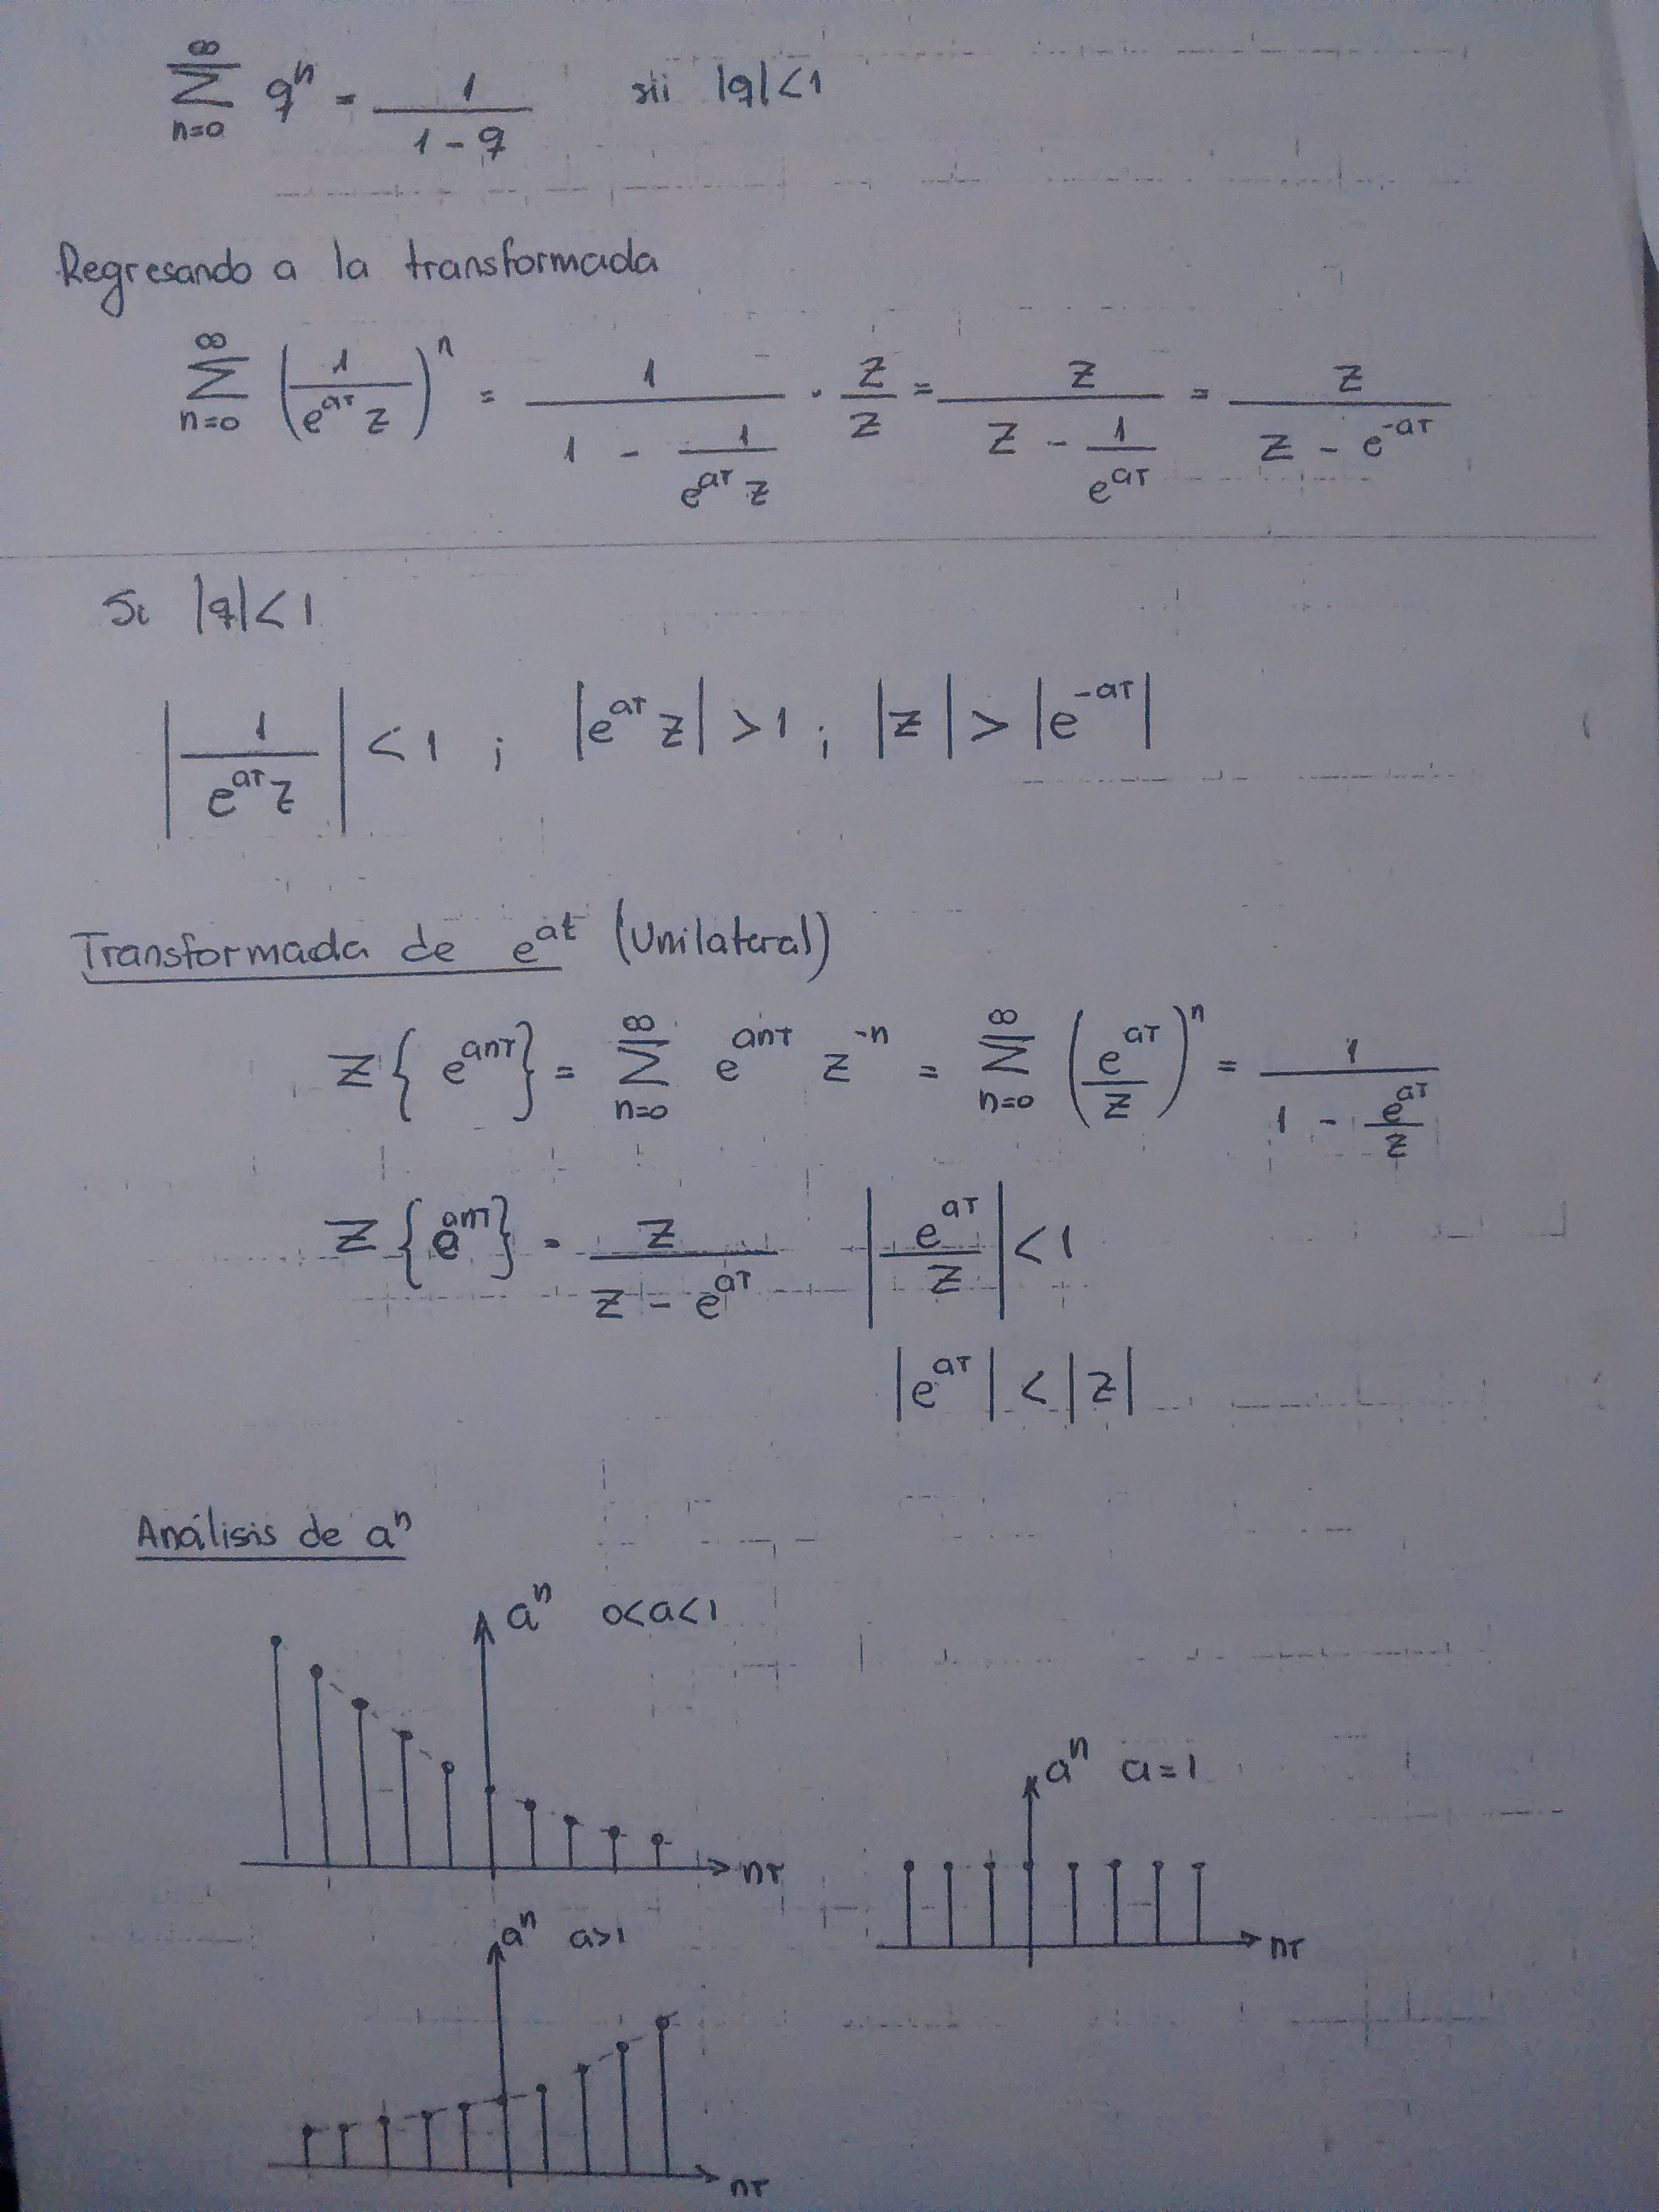 ∞
∑ qⁿ = 1 / (1 - q)   sii |q| < 1
n=0
Regresando a la transformada
∞
∑ (1 / (e^{aT} z))ⁿ = 1 / (1 - 1/(e^{aT} z)) · z/z = z / (z - 1/e^{aT}) = z / (z - e^{-aT})
n=0
Si |q| < 1
|1 / (e^{aT} z)| < 1 ; |e^{aT} z| > 1 ; |z| > |e^{-aT}|
Transformada de e^{at} (Unilateral)
Z{e^{anT}} = ∑_{n=0}^{∞} e^{anT} z^{-n} = ∑_{n=0}^{∞} (e^{aT} / z)ⁿ = 1 / (1 - e^{aT}/z)
Z{e^{anT}} = z / (z - e^{aT})   |e^{aT} / z| < 1
|e^{aT}| < |z|
Análisis de aⁿ
aⁿ 0<a<1
nT
aⁿ a=1
nT
aⁿ a>1
nT